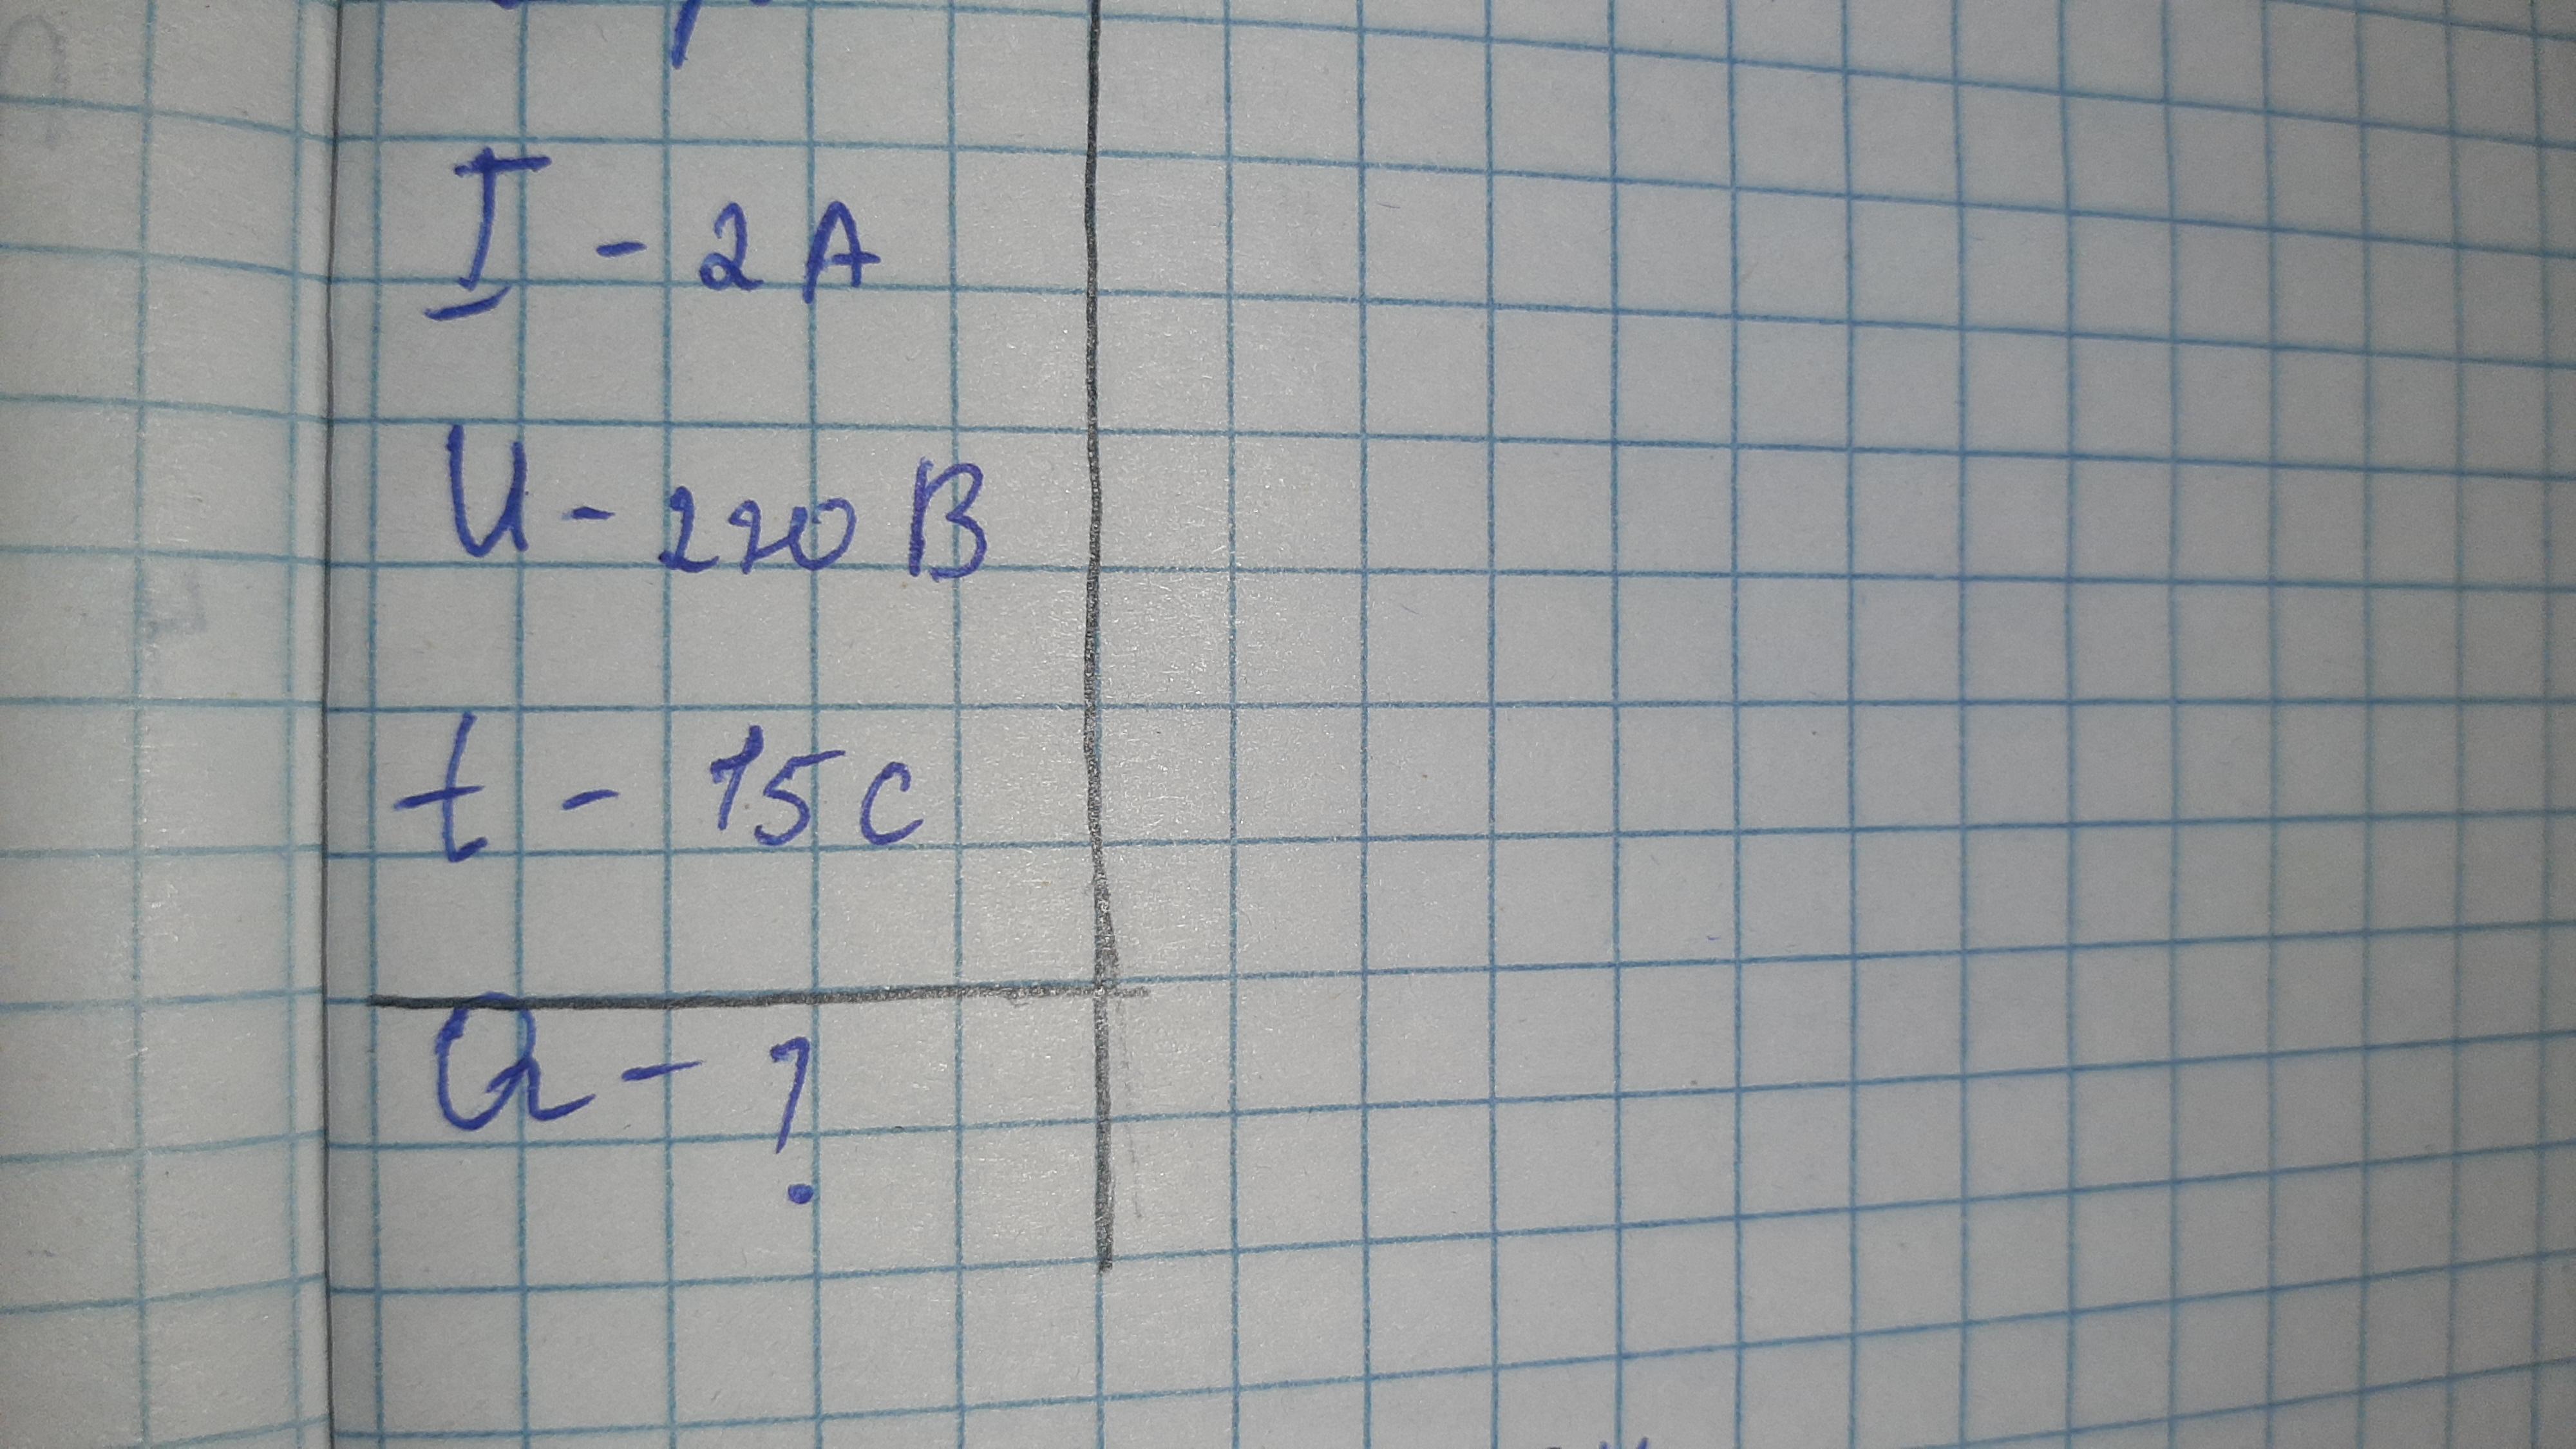 I - 2 А
U - 220 В
t - 15 с
Q - ?